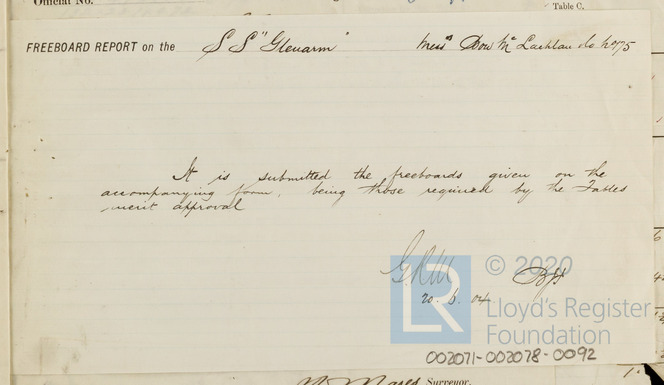 Official No.
Table C.
FREEBOARD REPORT on the S S "Glenarm" Mess<sup>rs</sup> Dow Mc Lachlan & Co No 75
It is submitted the freeboards given on the
accompanying form, being those required by the Tables
merit approval
20.6.04
© 2020
LR
Lloyd's Register
Foundation
002071-002078-0092
Surveyor.